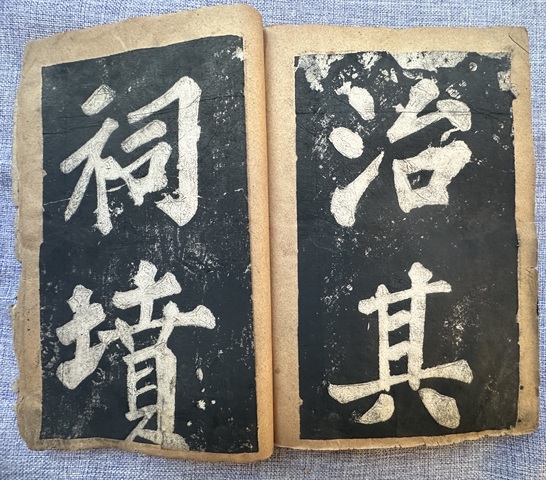 治其
祠墳